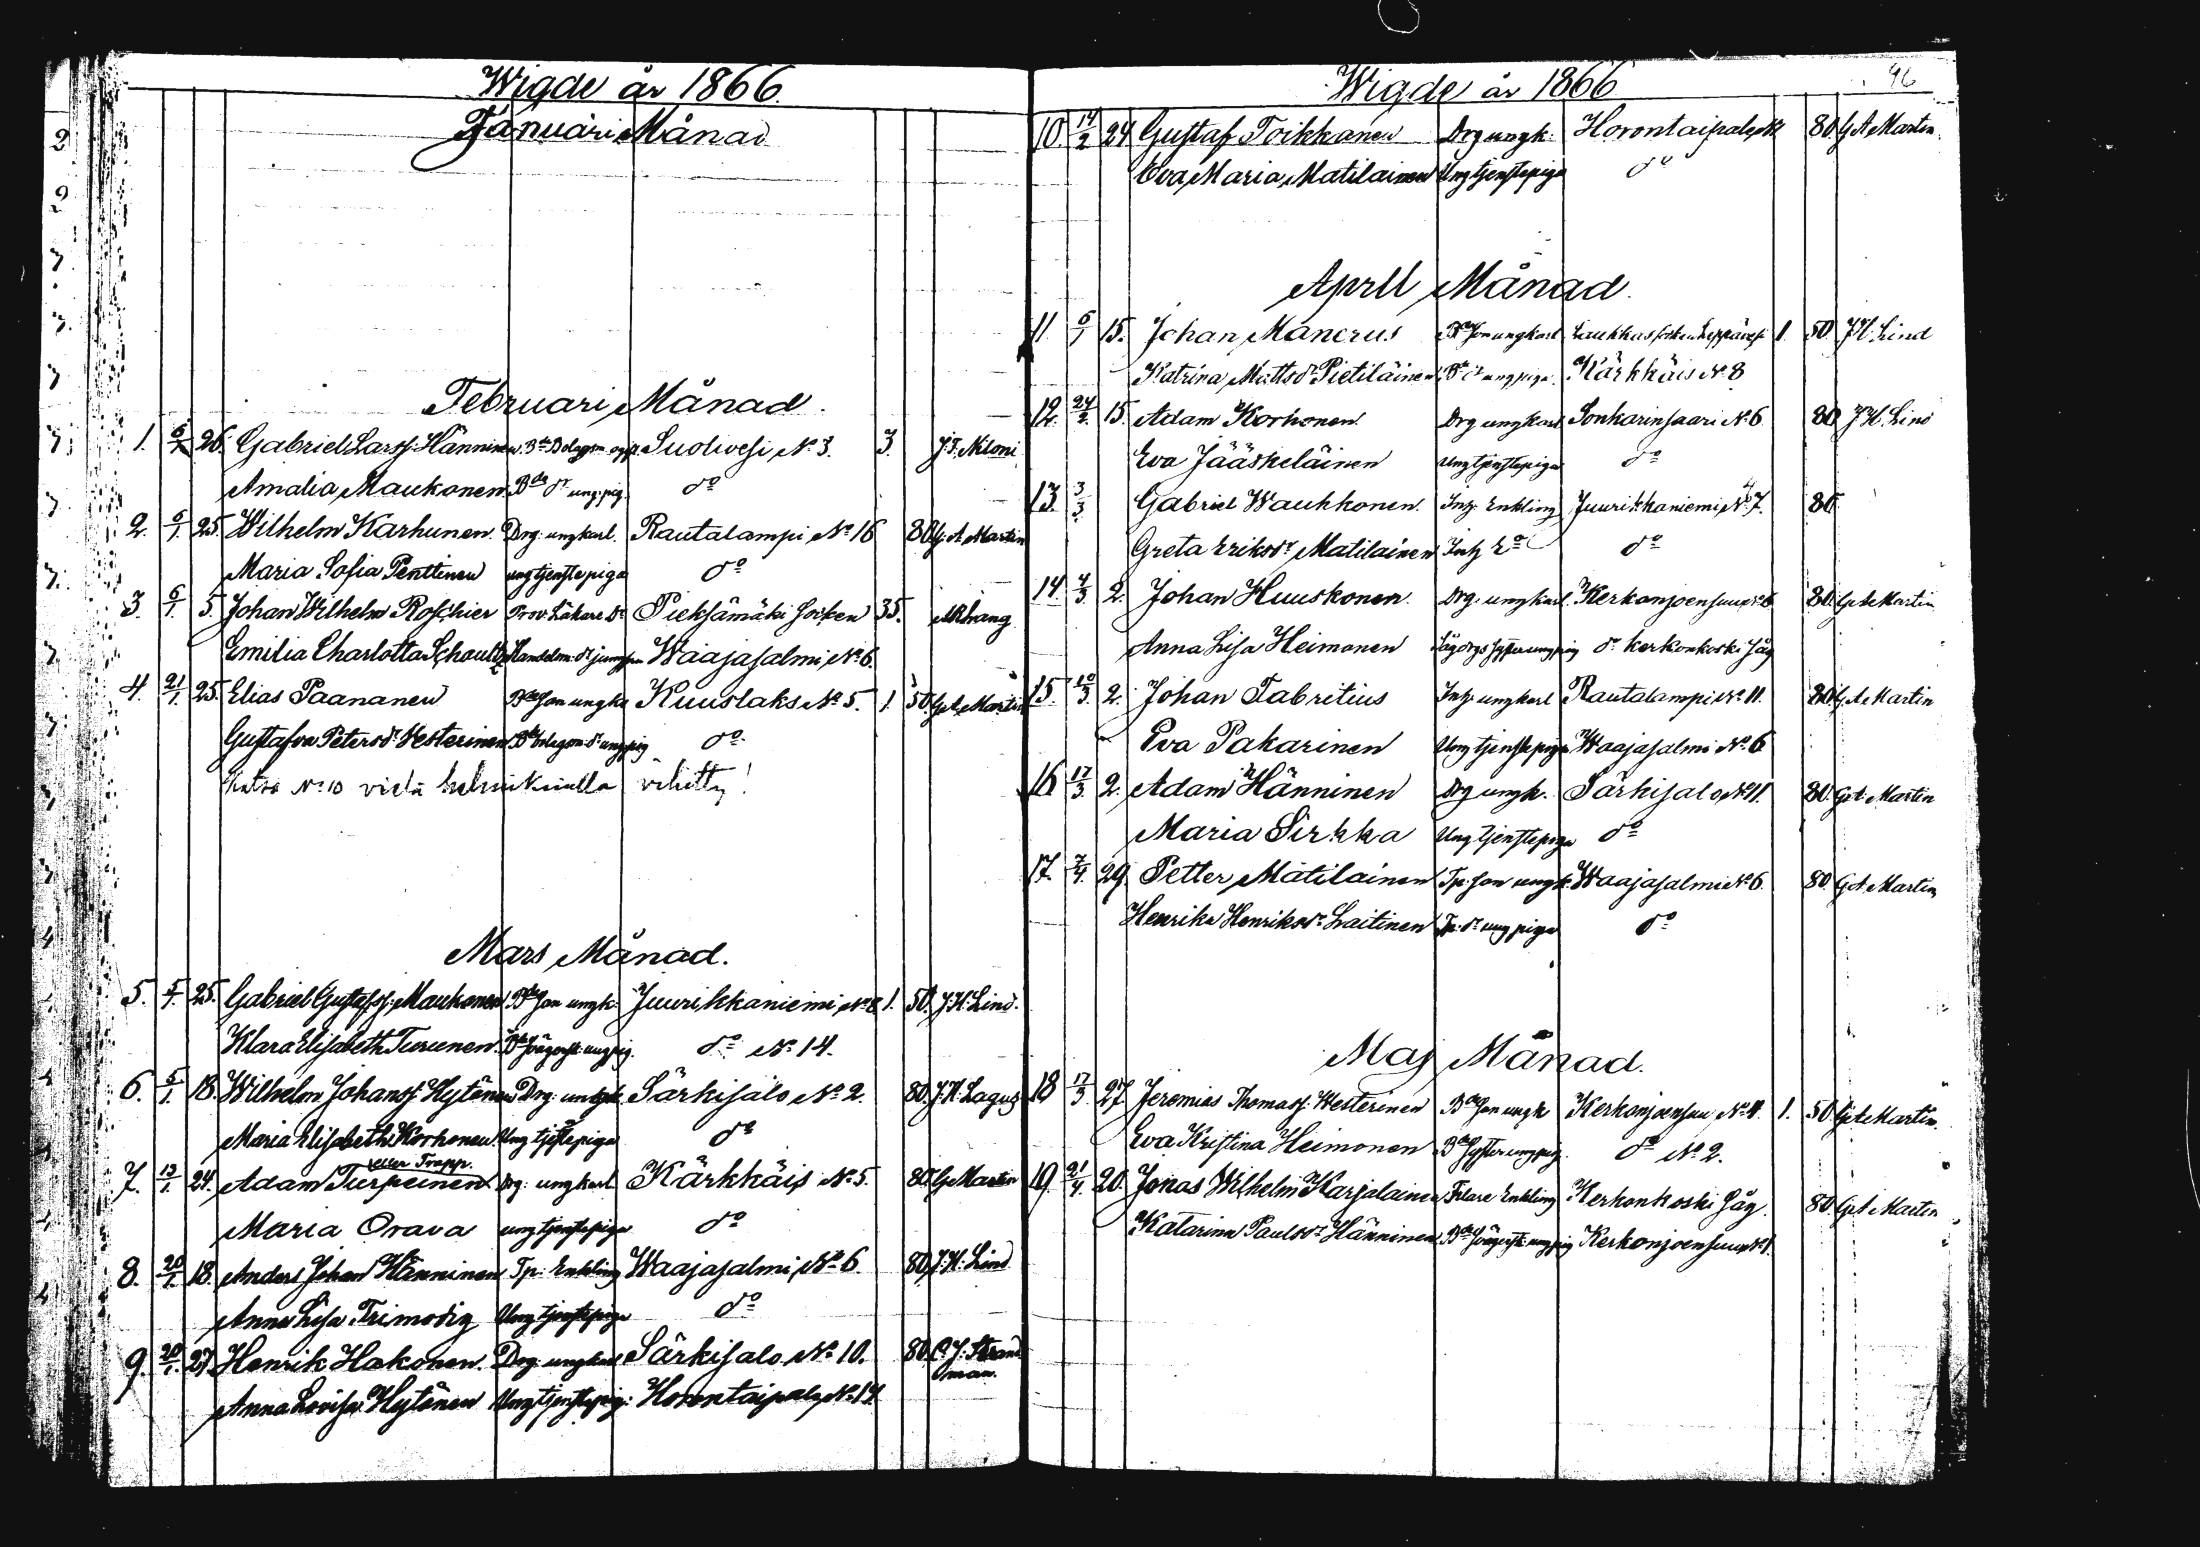 Wigde år 1866.
Januari Månad
Februari Månad.
1. 6/1 26. Gabriel Larss. Hänninen Bde Bolagsm. Suolivesi No 3. 3. J. F. Niloni
Amalia Maukonen Bde dr ung: pig. do
2. 6/1 25. Wilhelm Karhunen. Drg: ungkarl. Rautalampi No 16 80. G. A. Martin
Maria Sofia Penttinen ung tjenstepiga do
3. 6/1 5. Johan Wilhelm Roschier Prov. Läkare Dr Pieksämäki Socken 35.
Emilia Charlotta Schoultz Handelm: dr jungfru Waajasalmi No 6.
4. 21/1 25. Elias Paananen Bde son ungka Kuuslaks No 5. 1 50. G. A. Martin
Gustafva Petersdr Westerinen Bde bolagsm: dr ung pig do
Katso No 10 vielä helmikuulla vihitty!
Mars Månad.
5. 5/1. 25. Gabriel Gustafss: Maukonen Bde son ungk: Juurikkaniemi No 8 1. 50. J. H. Lind.
Klara Elisabeth Turunen. Bde Svägersk: ung pig. do No 14.
6. 5/1. 18. Wilhelm Johanss. Hytönen Drg: ungk Särkisalo No 2. 80. J. H. Lagus
Maria Elisabeth Korhonen. Ung tjstepiga do
eller Trapp.
7. 13/1. 24. Adam Turpeinen Drg: ungkarl Kärkkäis No 5. 80. G. Martin
Maria Orava ung tjenstepiga do
8. 20/1. 18. Anders Johan Hänninen Tp: Enkling Waajasalmi No 6. 80. J. H. Lind
Anna Lisa Trimodig Ung tjenstepiga do
9. 20/1. 27. Henrik Hakonen. Drg: ungkarl Särkisalo No 10. 80. C. J. Strand
man.
Anna Lovisa Hytönen Ung tjenstepig: Horontaipale No 14
Wigde år 1866
96
10. 14/2 24 Gustaf Toikkanen Drg ungk: Horontaipale 80. G A Martin
Eva Maria Matilainen Ung tjenstepiga do
April Månad.
11 6/1 15. Johan Manerus Bde son ungkarl Laukkas socken Leppävesi 1. 50 J H. Lind
Katrina Mattsdr Pietiläinen Bde dr ung piga. Kärkkäis No 8
12. 24/2. 15. Adam Korhonen. Drg ungkarl Sonkarinsaari No 6. 80 J H. Lind
Eva Jääskeläinen Ung tjenstepiga do
13. 3/3 Gabriel Waukkonen. Inh: Enkling Juurikkaniemi No 7. 80.
Greta Eriksdr Matilainen Inh Ea do
14. 4/3. 2. Johan Huuskonen. Drg. ungkarl. Kerkonjoensuu No 6 80. G. A. Martin
Anna Lisa Heimonen ung pig do Kerkonkoski Såg
15. 10/3. 2. Johan Fabritius Inh: ungkarl Rautalampi No 11. 80. G. A. Martin
Eva Pakarinen Ung tjenstepiga Waajasalmi No 6
16 17/3. 2. Adam Hänninen Drg ungk. Särkisalo No 11. 80. G. A. Martin
Maria Sirkka Ung tjenstepiga do
17. 7/4. 29. Petter Matilainen Tp: son ungk: Waajasalmi No 6. 80. G. A. Martin
Henrika Henriksdr Laitinen Tp: dr ung piga do
Maj Månad.
18 17/3. 27. Jeremias Thomass. Westerinen Bde son ungk Kerkonjoensuu No 4. 1. 50. G. A. Martin
Eva Kristina Heimonen Bde Syster ung pig. do No 2.
19. 21/4. 20. Jonas Wilhelm Karjalainen Filare Enkling Kerkonkoski Såg. 80. G. A. Martin
Katarina Paulsdr Hänninen Bde Svägersk: ung pig Kerkonjoensuu No 1.